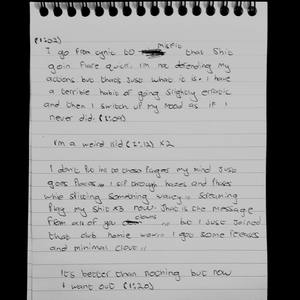 (1:02)
misfit
I go from cynic to that shit
goin flare quick. I'm not defending my
actions but thats just what it is. I have
a terrible habit of going slightly erratic
and then I switch up my mood as if I
never did. (1:09)
I'm a weird kid (1:12) x2
I don't put ink to these pages my mind just
goes places. I sift through hazes and phases
while sipping something Screaming
play my shit x3 now. That is the message
from all of you clowns but I just joined
that club homie I got some features
and minimal clout.
It's better than nothing but now
I want out (1:20)